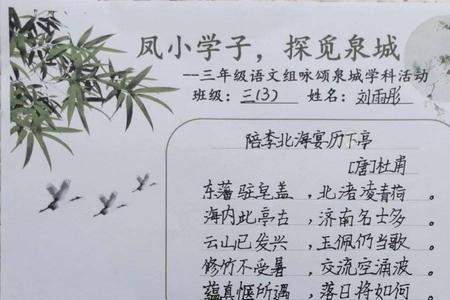 凤小学子，探觅泉城
--三年级语文组咏颂泉城学科活动
班级：三(3) 姓名：刘雨彤
陪李北海宴历下亭
[唐]杜甫
东藩驻皂盖，北渚凌青荷。
海内此亭古，济南名士多。
云山已发兴，玉佩仍当歌。
修竹不受暑，交流空涌波。
蕴真惬所遇，落日将如何。